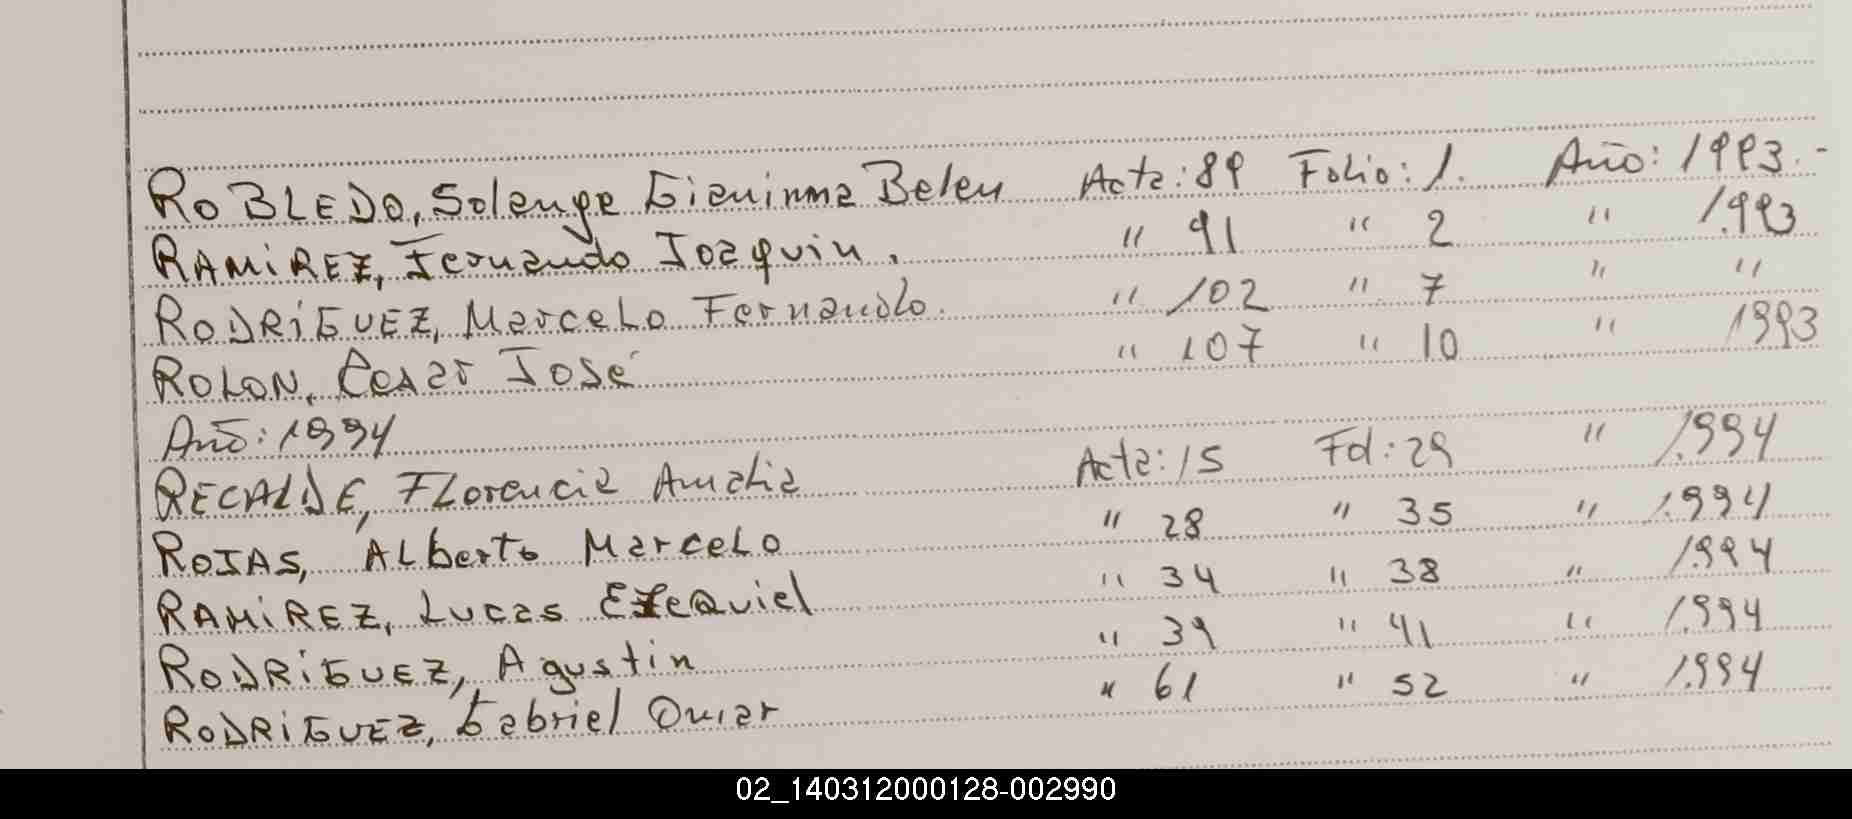 ROBLEDO, Solange Gianinna Belen Acta: 89 Folio: 1. Año: 1993.-
RAMIREZ, Fernando Joaquin. " 91 " 2 " 1.993
RODRIGUEZ, Marcelo Fernando. " 102 " 7 " "
ROLON, Cesar José " 107 " 10 " 1993
Año: 1994
RECALDE, Florencia Amalia Acta: 15 Fol: 29 " 1.994
ROJAS, Alberto Marcelo " 28 " 35 " 1.994
RAMIREZ, Lucas Ezequiel " 34 " 38 " 1.994
RODRIGUEZ, Agustin " 39 " 41 " 1.994
RODRIGUEZ, Gabriel Omar " 61 " 52 " 1.994
02_140312000128-002990